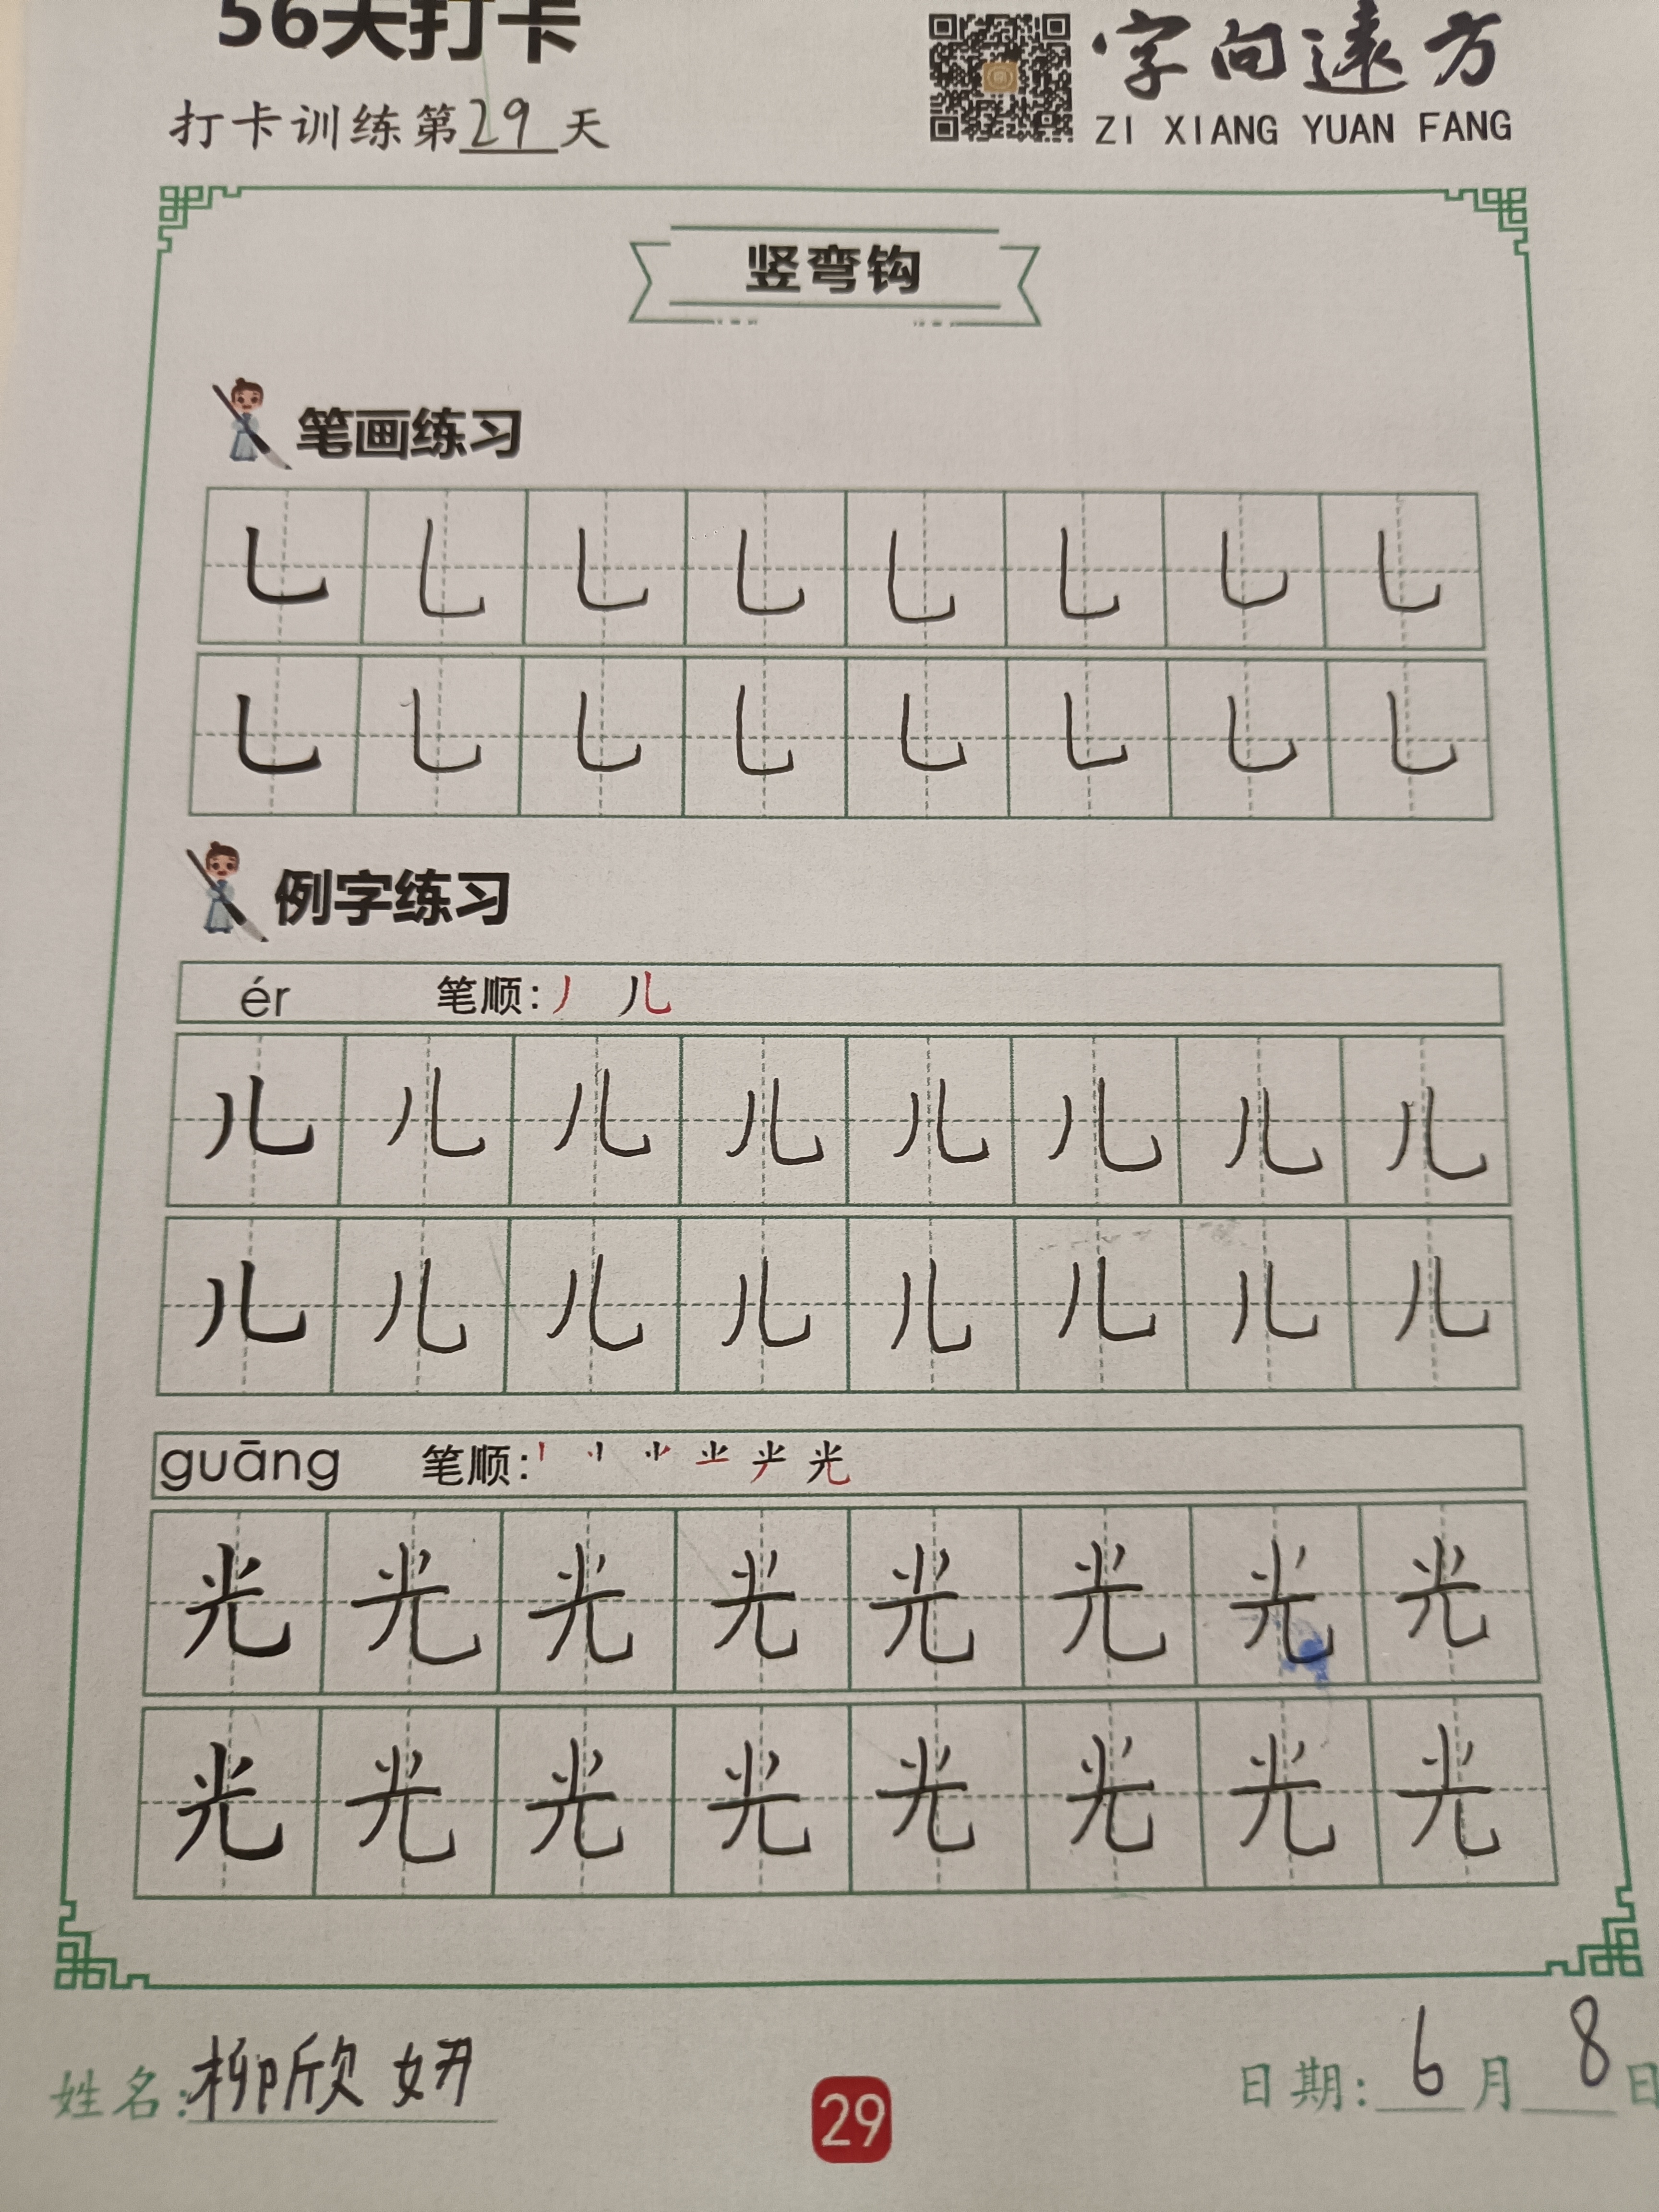 56天打卡
字向远方
打卡训练第29天
ZI XIANG YUAN FANG
竖弯钩
笔画练习
乚 乚 乚 乚 乚 乚 乚 乚
乚 乚 乚 乚 乚 乚 乚 乚
例字练习
ér 笔顺: 丿 儿
儿 儿 儿 儿 儿 儿 儿 儿
儿 儿 儿 儿 儿 儿 儿 儿
guāng 笔顺: 光
光 光 光 光 光 光 光 光
光 光 光 光 光 光 光 光
姓名:柳欣妍
29
日期: 6月8日